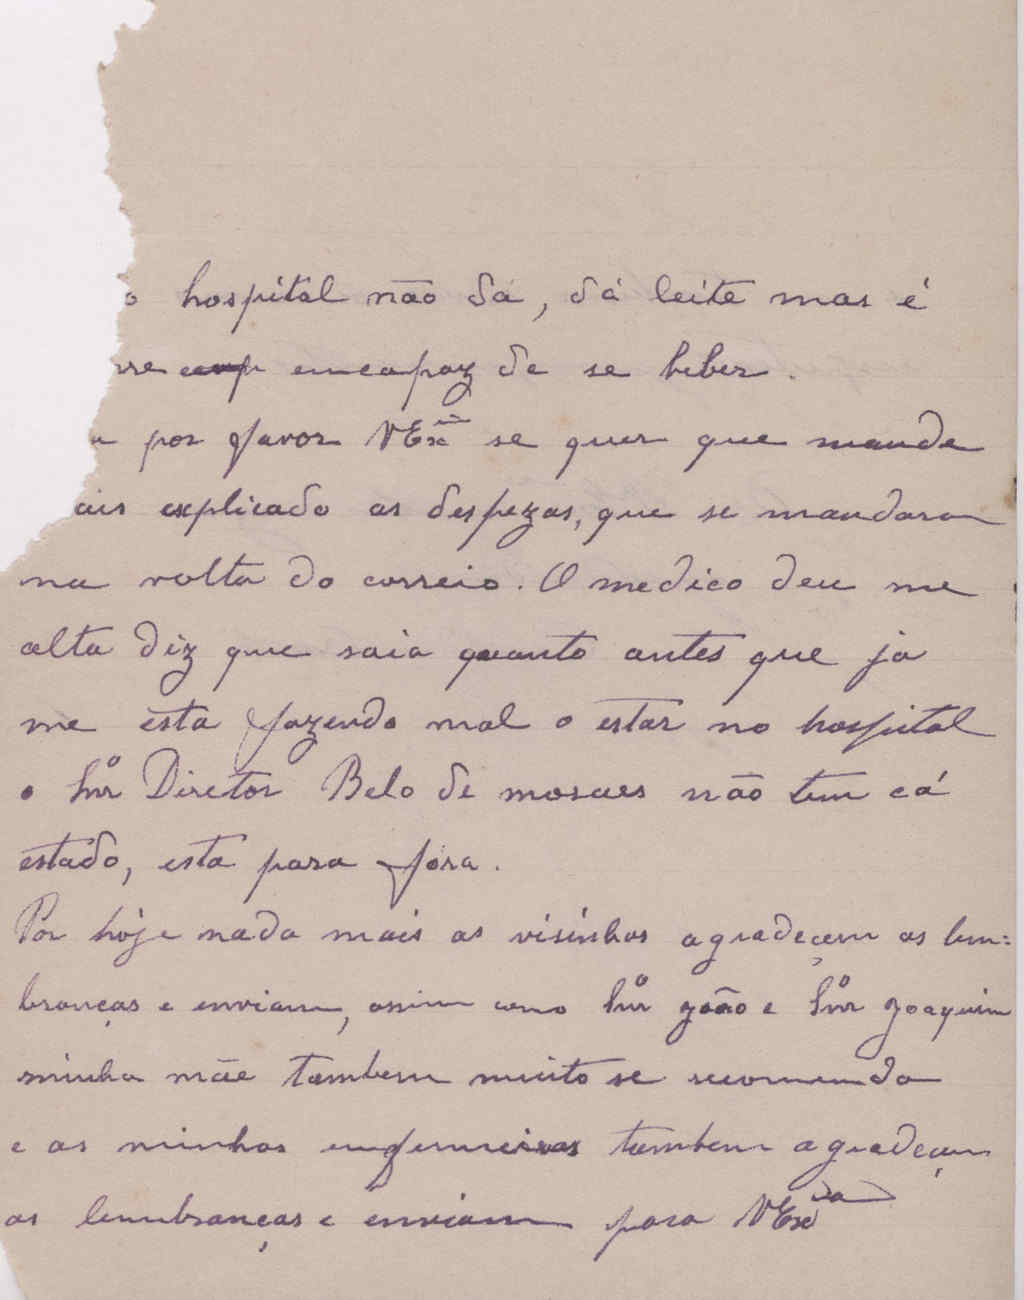 o hospital não dá, dá leite mas é
emcapaz de se beber.
por favor VExcia se quer que mande
ais explicado as despezas, que se mandaram
na volta do correio. O medico deu me
alta diz que saia quanto antes que ja
me esta fazendo mal o estar no hospital
o Snro Diretor Belo de moraes não tem cá
estado, esta para fóra.
Por hoje nada mais as visinhas agradeçem as lem=
branças e enviam, assim como Snro João e Snro Joaquim
minha mãe tambem muito se recomenda
e as minhas enfermeiras tambem agradeçem
as lembranças e enviam para VExcia